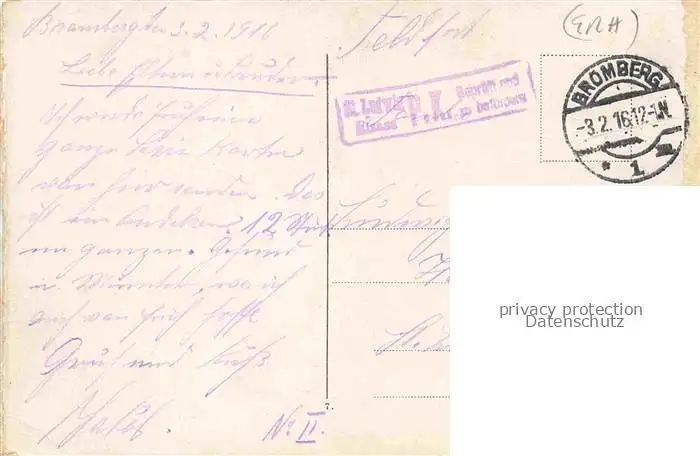 Bromberg den 3.2.1916
Liebe Eltern u. Bruder.
Ich werde Euch eine
ganze Serie Karten
von hier senden. Das
ist ein Andenken. 12 Stück
im ganzen. Gesund
u. Munter, was ich
auch von Euch hoffe
Gruß und Kuß
Jakob.
No. II.
Feldpost
(ERH)
St. Ludwig P. K. Geprüft und
Elsass zu befördern
BROMBERG
-3.2.16.12-1N.
* 1 m
7.
Ludwig
St.
privacy protection
Datenschutz